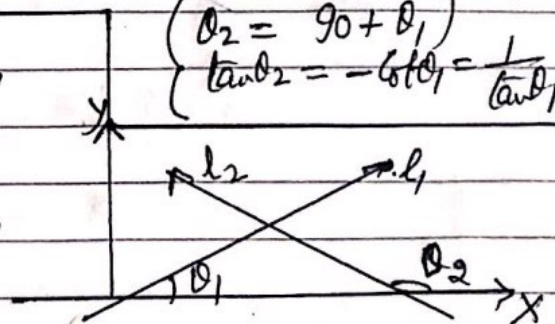 θ₂ = 90 + θ₁
tanθ₂ = -cotθ₁ = 1/tanθ₁
y
l₂
l₁
θ₁
θ₂
X